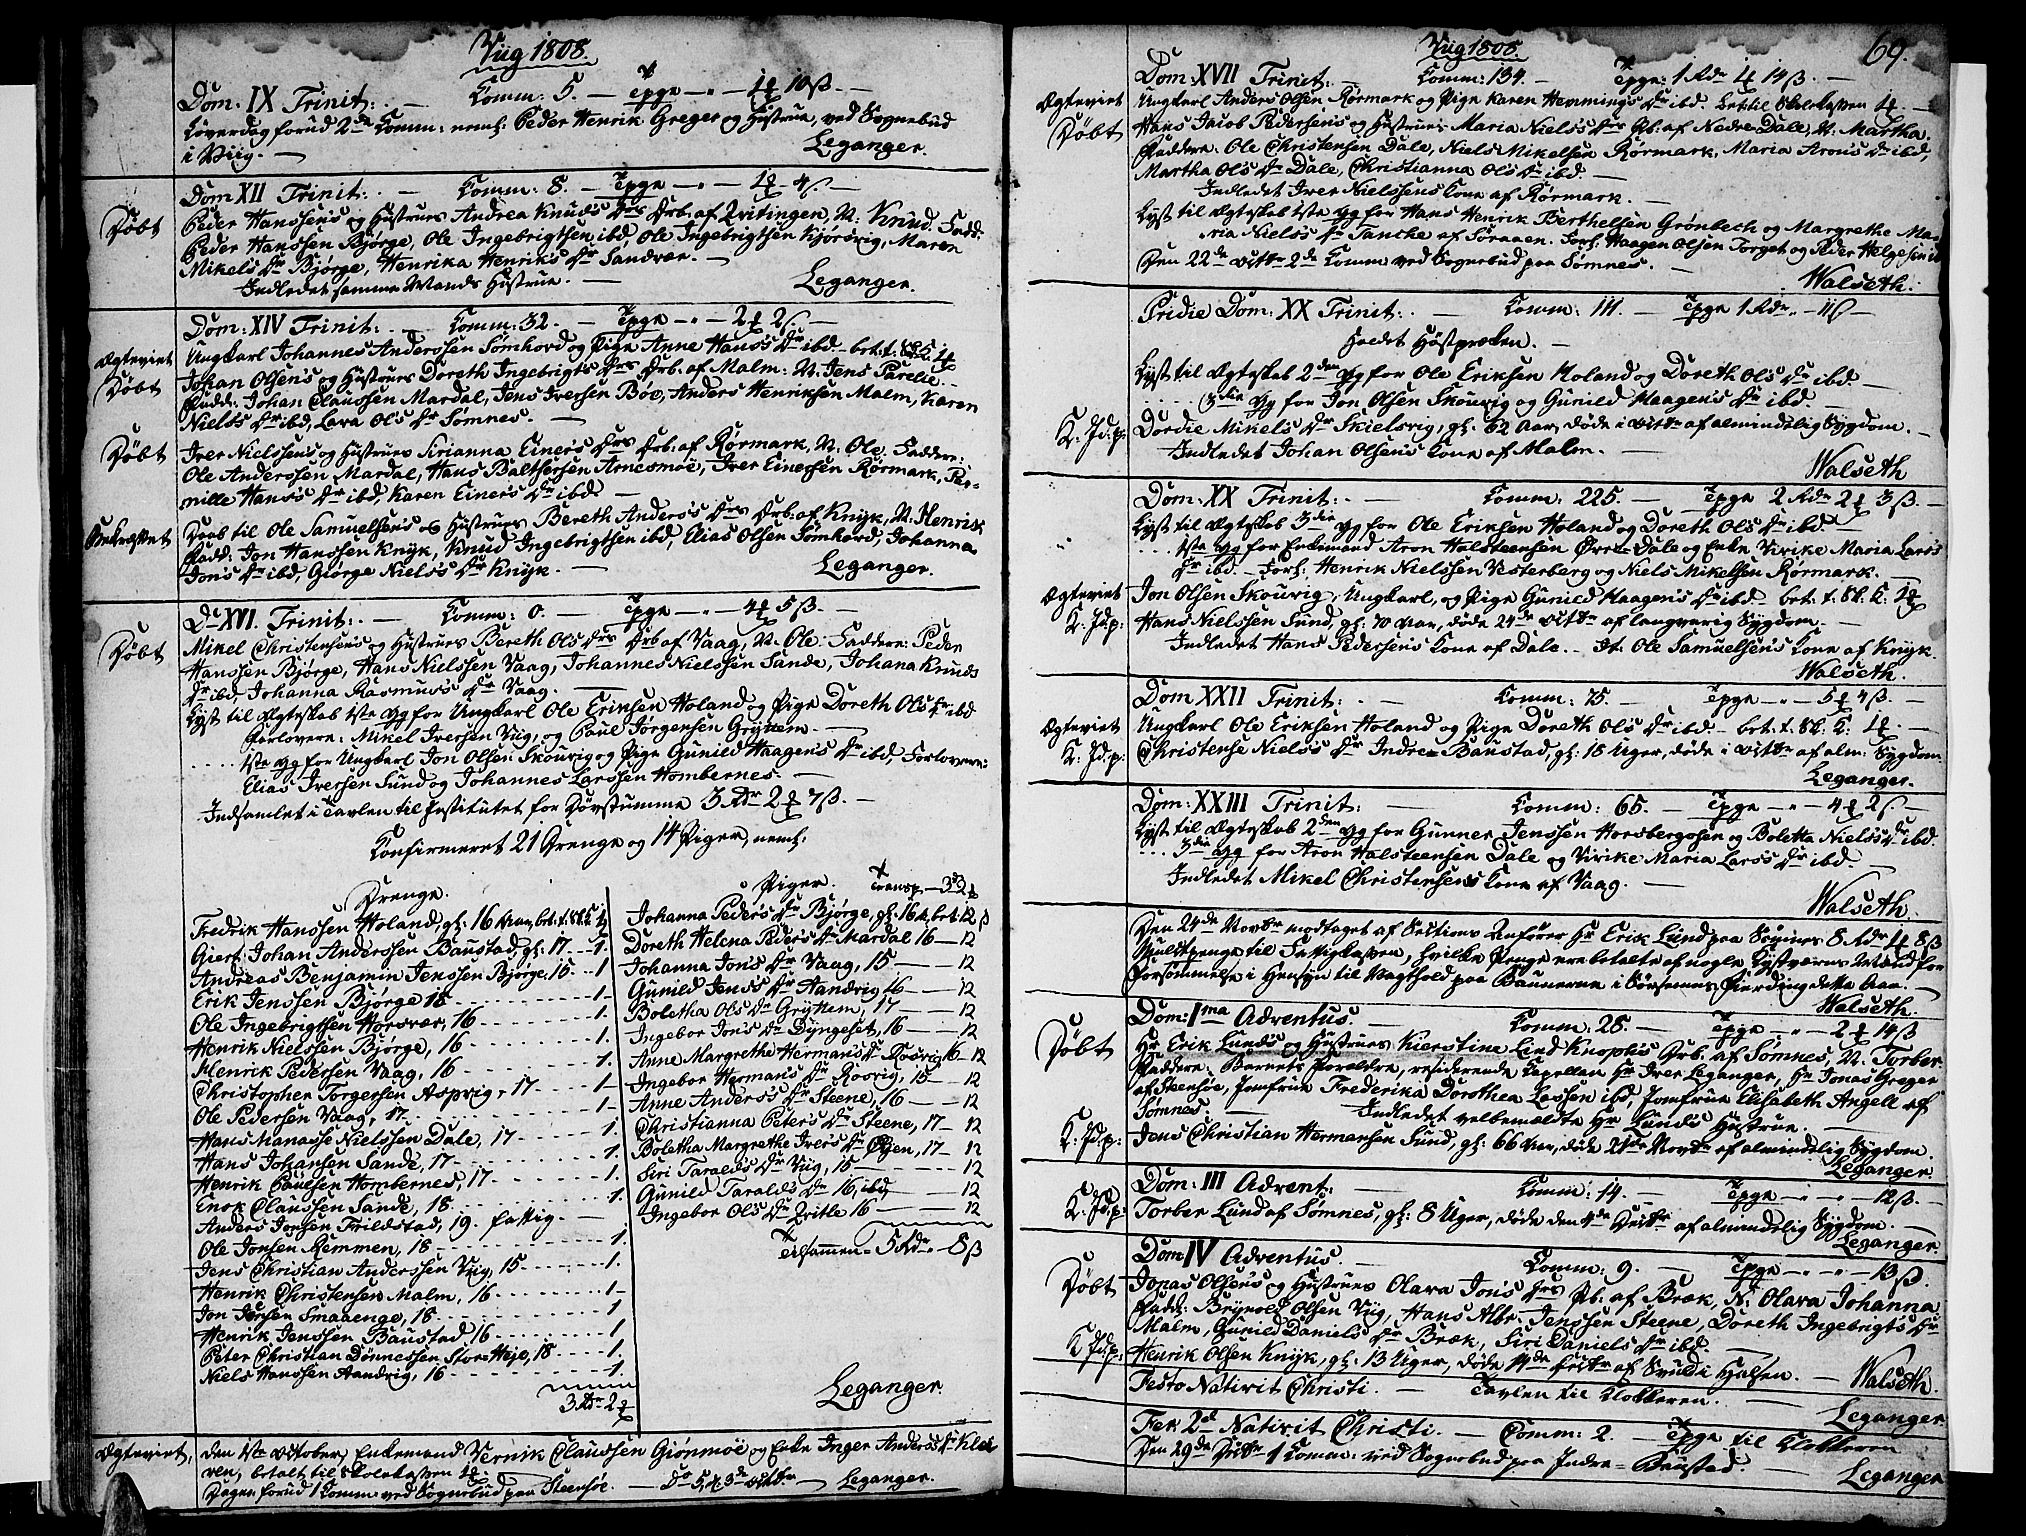 Viig 1808.
Dom: IX Trinit: — Comm: 5. — Tpge — " — 1 10ß —
Løverdag forud 2de Comm: neml: Peder Henrik Greger og Hustrue, ved Sognebud
i Viig. — Leganger.
Dom XII Trinit: — Comm: 8. — Tpge — " — 1 4ß —
Døbt
Peder Hanssen's og Hustrues Andrea Knud's Drs Drb: af Qvitingen, N: Knud. Fadd:
Peder Hanssen Bjørge, Ole Ingebrigtsen ibd, Ole Ingebrigtsen Kjørsvig, Maren
Mikels Dr Bjørge, Henrika Henriks Dr Sandvær. —
Indledet samme Mands Hustrue. — Leganger.
Dom: XIV Trinit: — Comm: 32. — Tpge — " — 2 2ß. —
Ægteviet
Ungkarl Johannes Anderssen Sømhovd og Pige Anne Hans's Dr ibd bet. t.
Døbt
Johan Olsen's og Hustrues Doreth Ingebrigts Drs Drb. af Malm: N. Jens Parelie.
Fadd: Johan Claussen Mardal, Jens Iversen Bøe, Anders Henriksen Malm, Karen
Niels's Dr ibd, Lara Ols Dr Sømnes. —
Døbt
Iver Nielssens og Hustrues Sirianna Einers Drs Drb: af Rørmark, N. Ole. Faddere:
Ole Anderssen Mardal, Hans Balthersen Arnesmoe, Iver Einersen Rørmark, Per-
nille Hans's Dr ibd Karen Einer's Dr ibd. —
Bekræftet
Daab til Ole Samuelsen's og Hustrues Bereth Anders's Drs Drb: af Knyk, N. Henrik
Fadd: Jon Hanssen Knyk, Knud Ingebrigtsen ibd, Elias Olsen Sømhovd, Johanna
Jons Dr ibd, Giørge Niels's Dr Knyk. — Leganger.
D: XVI. Trinit: — Comm: 0. — Tpge — " — 4 5ß. —
Døbt
Mikel Christensen's og Hustrues Bereth Ols Drs Drb af Vaag, N. Ole. Faddere: Peder
Hanssen Bjørge, Hans Nielssen Vaag, Johannes Nielssen Sande, Johana Knuds
Dr ibd, Johanna Rasmus's Dr Vaag. —
Lyst til Ægteskab 1ste Gg for Ungkarl Ole Eriksen Holand og Pige Doreth Ols Dr ibd
Forlovere: Mikel Iversen Viig, og Paul Jørgensen Gryttem. —
.... 1ste Gg for Ungkarl Jon Olsen Skourig og Pige Gunild Haagen's Dr ibd, Forlovere:
Elias Iversen Sund og Johannes Larssen Hombernes. —
Indsamlet i Tavlen til Institutet for Døvstumme 3 Rdr 2 7ß. —
Confirmeret 21 Drenge og 14 Piger, neml:
Drenge.
Fredrik Hanssen Holand, gl: 16 Aar, bet. t.
Giert Johan Anderssen Baustad, gl: 17 — 1.
Andreas Benjamin Jenssen Bjørge, 15 .. 1
Erik Jenssen Bjørge 18 ...... 1.
Ole Ingebrigtsen Horsvær, 16 ..... 1.
Henrik Nielssen Bjørge, 16 ..... 1.
Henrik Pedersen Vaag, 16 ...... 1.
Christopher Torgersen Aspvig, 17 .... 1.
Ole Pedersen Vaag, 17. ...... 1.
Hans Manasse Nielssen Dale, 17 .... 1.
Hans Johansen Sande, 17 ..... 1
Henrik Paulsen Hombernes, 17 .... 1.
Enok Claussen Sande, 18 ..... 1
Anders Jonsen Frildstad, 19. fattig. —
Ole Jonsen Remmen, 18 ..... 1.
Jens Christian Anderssen Viig, 15 .... 1.
Henrik Christensen Malm, 16 .... 1
Jon Jonsen Smaaenge, 18 .... 1
Henrik Jenssen Baustad 16 .... 1
Peter Christian Dønnessen Stor=Heje, 18 ... 1.
Niels Hanssen Aandvig, 16 .... 1.
3 Rdr 2
Piger. Transp — 3 2
Johanna Peder's Dr Bjørge, gl: 16 A, bet: 12 ß
Doreth Helena Peder's Dr Mardal 16 — 12
Johanna Jon's Dr Vaag, 15 — 12
Gunild Jens's Dr Aandvig 16 — 12
Boletha Ols Dr Gryttem, 17 — 12
Ingebor Jon's Dr Dyngeset, 16 — 12
Anne Margrethe Herman's Dr Rosvig 16 — 12
Ingebor Herman's Dr Rosvig, 15 — 12
Anne Anders's Dr Steene, 16 — 12
Christianna Peter's Dr Steene, 17 — 12
Boletha Margrethe Ivers Dr Øyen, 17 — 12
Siri Tarald's Dr Viig, 15 — 12
Gunild Tarald's Dr 16, ibd, — 12
Ingebor Ols Dr Qvitle 16 — 12
Tilsammen — 5 Rdr " 8ß
Leganger.
Ægteviet,
den 1ste October, Enkemand Vernik Claussen Giønmoe og Enke Inger Anders's Dr Klei
ven, betalt til Skolekassen 1
Dagen forud 1 Comm: ved Sognebud paa Steensøe. — Leganger.
Viig 1808. 69.
Dom: XVII Trinit: — Comm: 134. — Tpge: 1 Rdr 1 14ß. —
Ægteviet
Ungkarl Anders Olsen Rørmark og Pige Karen Hemming's Dr ibd. bet: til Skolekassen 1.
Døbt
Hans Jacob Pedersens og Hustrues Maria Niels's Drs Pb: af Nedre Dale, N. Martha.
Faddere: Ole Christensen Dale, Niels Mikelsen Rørmark, Maria Arons Dr ibd,
Martha Ols Dr Dale, Christianna Ols Dr ibd —
Indledet Iver Nielssens Kone af Rørmark. —
Lyst til Ægteskab 1ste Gg for Hans Henrik Berthelsen Grønbech og Margrethe Ma-
ria Niels's Dr Tancke af Søraaen. Forl: Haagen Olsen Torget og Peder Helgesen ib
Den 22de Octbr 2de Comm ved Sognebud paa Sømnes. —
Walseth.
Pridie Dom: XX Trinit: — Comm: 111. — Tpge 1 Rdr " 11ß —
Holdet Høstprækén. —
Lyst til Ægteskab 2den Gg for Ole Eriksen Holand og Doreth Ols Dr ibd —
.... 3die Gg for Jon Olsen Skourig og Gunild Haagen's Dr ibd. —
K: Jd: p:
Dordie Mikels Dr Skielsvig, gl: 62 Aar, døde i Octbr af almindelig Sygdom. —
Indledet Johan Olsen's Kone af Malm. —
Walseth
Dom: XX Trinit: — Comm: 225. — Tpge 2 Rdr 2 3ß. —
Lyst til Ægteskab 3die Gg for Ole Eriksen Holand og Doreth Ols Dr ibd —
.... 1ste Gg for Enkemand Aron Halsteensen Øvre=Dale og Enke Virike Maria Lars's
Dr ibd. — Forl: Henrik Nielssen Vesterberg og Niels Mikelsen Rørmark. —
Ægteviet
Jon Olsen Skourig, Ungkarl, og Pige Gunild Haagen's Dr ibd — bet. t. Sk. K: 1
K: Jd: p:
Hans Nielssen Sund, gl. 70 Aar, døde 24de Octbr af langvarig Sygdom. —
Indledet Hans Pedersens Kone af Dale. — It: Ole Samuelsen's Kone af Knyk.
Walseth.
Dom: XXII Trinit: — Comm: 75. — Tpge — " — 5 4ß. —
Ægteviet
Ungkarl Ole Eriksen Holand og Pige Doreth Ols Dr ibd. — bet: t: Sk: K: 1. —
K: Jd: p:
Christense Niels's Dr Indre=Baustad, gl: 18 Uger, døde i Octbr af alm: Sygdom.
Leganger.
Dom: XXIII Trinit: — Comm: 65. — Tpge — " — 4 2ß —
Lyst til Ægteskab 2den Gg for Gunner Jenssen Horsbergosen og Boletta Niels's Dr ibd.
.... 3die Gg for Aron Halsteensen Dale og Virike Maria Lars's Dr ibd. —
Indledet Mikel Christensens Kone af Vaag. —
Walseth.
Den 24de Novbr modtaget af Sections Anfører Hr Erik Lund paa Sømnes 8 Rdr 1 8ß
Mulktpenge til Fattigkassen, hvilke Penge ere betalte af nogle Kystværns Mænd for
Forsømmelse i Hensyn til Vagthold paa Baunerne i Sørsømnes Fierding dette Aar. —
Walseth.
Dom: 1ma Adventus. — Comm: 28. — Tpge — " — 2 14ß
Døbt
Hr Erik Lunds og Hustrues Kierstine Lind Knoph's Drb. af Sømnes, N. Torber.
Faddere: Barnets Forældre, residerende Capellan Hr Iver Leganger, Hr Jonas Greger
af Steensøe, Jomfrue Frederika Dorothea Lassen ibd, Jomfrue Elisabeth Angell af
Sømnes. — Indledet velbemældte Hr Lunds Hustrue. —
K: Jd: p:
Jens Christian Hermansen Sund, gl: 66 Aar, døde 21de Novbr af almindelig Sygdom.
Leganger.
Dom: III Advent: — Comm: 14. — Tpge — " — " — 12ß. —
K: Jd: p:
Torber Lund af Sømnes, gl: 8 Uger, døde den 4de Decbr af almindelig Sygdom. —
Leganger.
Dom IV Adventus. — Comm: 9. — Tpge — " — " — 13ß.
Døbt
Jonas Olsen's og Hustrues Olava Jons Drs Pb: af Bræk, N: Olava Johanna.
Fadd: Brynold Olsen Viig, Hans Albr: Jenssen Steene, Doreth Ingebrigts Dr
Malm, Gunild Daniels Dr Bræk, Siri Daniels Dr ibd. —
K: Jd: p:
Henrik Olsen Knyk, gl: 13 Uger, døde 14de Decbr af Ondt i Halsen. — Walseth.
Festo Nativit Christi. — Tavlen til Klokkeren. —
Leganger
Fer 2d Nativit Christi. — Comm: 2. — Tpge til Klokkeren
Den 29de Decbr 1 Comm: ved Sognebud paa Indre=Baustad. —
Leganger